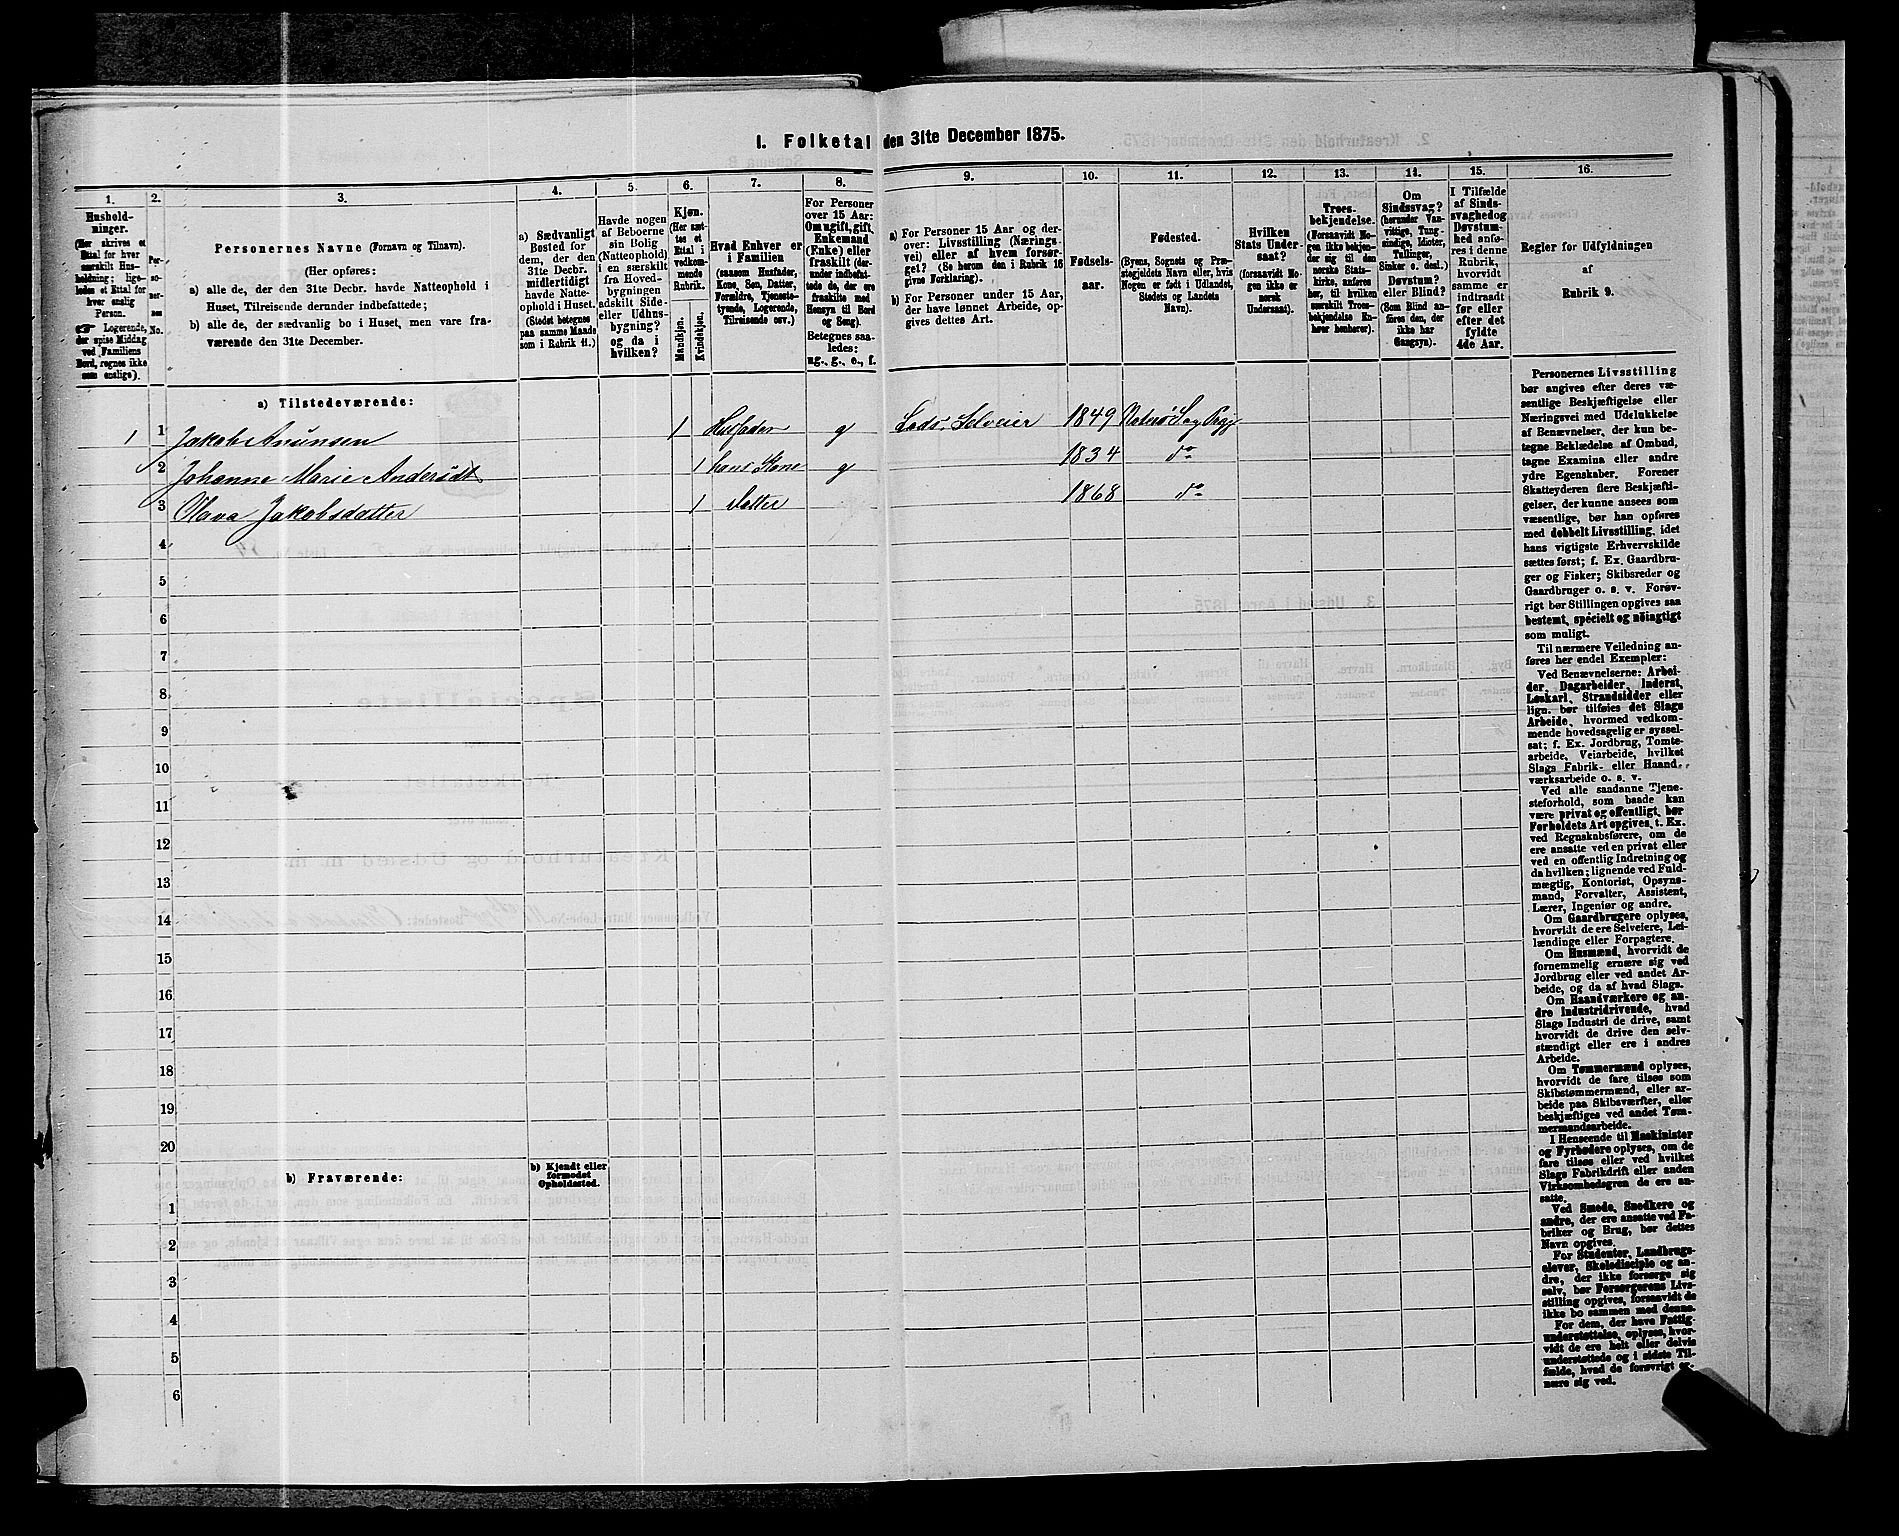 I. Folketal den 31te December 1875.
1.
2.
3.
4.
5.
6.
7.
8.
9.
10.
11.
12.
13.
14.
15.
16.
Hushold-
ninger.
(Her skrives et
Ettal for hver
særskilt Hus-
holdning; lige-
ledes et Ettal for
hver enslig
Person.
☞ Logerende,
der spise Middag
ved Familiens
Bord, regnes ikke
som enslige).
Per-
so-
ner-
nes
No.
Personernes Navne (Fornavn og Tilnavn).
(Her opføres:
a) alle de, der den 31te Decbr. havde Natteophold i
Huset, Tilreisende derunder indbefattede;
b) alle de, der sædvanlig bo i Huset, men vare fra-
værende den 31te December.
a) Sædvanligt
Bosted for
dem, der den
31te Decbr.
midlertidigt
havde Natte-
ophold i Huset.
(Stedet betegnes
paa samme Maade
som i Rubrik 11.)
Havde nogen
af Beboerne
sin Bolig
(Natteophold)
i en særskilt
fra Hoved-
bygningen
adskilt Side-
eller Udhus-
bygning?
og da i
hvilken?
Kjøn.
(Her sæt-
tes et
Ettal i
vedkom-
mende
Rubrik.
Mandkjøn.
Kvindekjøn.
Hvad Enhver er
i Familien
(saasom Husfader,
Kone, Søn, Datter,
Forældre, Tjeneste-
tyende, Logerende,
Tilreisende osv.)
For Personer
over 15 Aar:
Om ugift, gift,
Enkemand
(Enke) eller
fraskilt (der-
under indbefat-
tede de, der ere
fraskilte med
Hensyn til Bord
og Seng).
Betegnes saa-
ledes:
ug., g., e., f.
a) For Personer 15 Aar og der-
over: Livsstilling (Nærings-
vei) eller af hvem forsør-
get? (Se herom den i Rubrik 16
givne Forklaring).
b) For Personer under 15 Aar,
der have lønnet Arbeide, op-
gives dettes Art.
Fødsels-
aar.
Fødested.
(Byens, Sognets og Præ-
stegjeldets Navn eller, hvis
Nogen er født i Udlandet,
Stedets og Landets
Navn).
Hvilken
Stats Under-
saat?
(forsaavidt No-
gen ikke er
norsk
Undersaat).
Troes-
bekjendelse.
(Forsaavidt No-
gen ikke bekjen-
der sig til den
norske Stats-
kirke, anføres
her, til hvilken
særskilt Troes-
bekjendelse En-
hver henhører).
Om
Sindssvag?
(herunder Van-
vittige, Tung-
sindige, Idioter,
Tullinger,
Sinker o. desl.)
Døvstum?
eller Blind?
(Som Blind an-
føres den, der
ikke har
Gangsyn).
I Tilfælde
af Sinds-
svaghed og
Døvstum-
hed anfø-
res i denne
Rubrik,
hvorvidt
samme er
indtraadt
før eller
efter det
fyldte
4de Aar.
Regler for Udfyldningen
af
Rubrik 9.
a) Tilstedeværende:
1 1 Jakob Anunsen 1 Husfader g Lods, Selveier 1849
2 Johanne Marie Andersdt 1 hans Kone g 1834 do
3 Olava Jakobsdatter 1 Datter 1868 do
4
5
6
7
8
9
10
11
12
13
14
15
16
17
18
19
20
b) Fraværende:
b) Kjendt eller
formodet
Opholdssted.
1
2
3
4
5
6
Personernes Livsstilling
bør angives efter deres væ-
sentlige Beskjæftigelse eller
Næringsvei med Udelukkelse
af Benævnelser, der kun be-
tegne Beklædelse af Ombud,
tagne Examina eller andre
ydre Egenskaber. Forener
Skatteyderen flere Beskjæfti-
gelser, der kunne ansees som
væsentlige, bør han opføres
med dobbelt Livsstilling, idet
hans vigtigste Erhvervskilde
sættes først; f. Ex. Gaardbru-
ger og Fisker; Skibsreder og
Gaardbruger o. s. v. Forøv-
rigt bør Stillingen opgives saa
bestemt, specielt og nøiagtigt
som muligt.
Til nærmere Veiledning an-
føres her endel Exempler:
Ved Benævnelserne: Arbei-
der, Dagarbeider, Inderst,
Løskarl, Strandsidder eller
lign. bør tilføies det Slags
Arbeide, hvormed vedkom-
mende hovedsagelig er syssel-
sat; f. Ex. Jordbrug, Tomte-
arbeide, Veiarbeide, hvilket
Slags Fabrik- eller Haand-
værksarbeide o. s. v.
Ved alle saadanne Tjene-
steforhold, som baade kan
være privat og offentligt, bør
Forholdets Art opgives, t. Ex.
ved Regnskabsførere, om de
ere ansatte ved en privat eller
ved en offentlig Indretning og
da hvilken; lignende ved Fuld-
mægtig, Kontorist, Opsyns-
mand, Forvalter, Assistent,
Lærer, Ingeniør og andre.
Om Gaardbrugere oplyses,
hvorvidt de ere Selveiere, Lei-
lændinge eller Forpagtere.
Om Husmænd, hvorvidt de
fornemmelig ernære sig ved
Jordbrug eller ved andet Ar-
beide, og da af hvad Slags.
Om Haandværkere og an-
dre Industridrivende, hvad
Slags Industri de drive, samt
hvorvidt de drive den selv-
stændigt eller ere i andres
Arbeide.
Om Tømmermænd oplyses,
hvorvidt de fare tilsøs som
Skibstømmermænd, eller ar-
beide paa Skibsværfter, eller
beskjæftiges ved andet Tøm-
mermandsarbeide.
I Henseende til Maskinister
og Fyrbødere oplyses, om de
fare tilsøs eller ved hvilket
Slags Fabrikdrift eller anden
Virksomhedsgren de ere an-
satte.
Ved Smede, Snedkere og
andre, der ere ansatte ved Fa-
briker og Brug, bør dettes
Navn opgives.
For Studenter, Landbrugs-
elever, Skoledisciple og an-
dre, der ikke forsørge sig
selv, bør Forsørgerens Livs-
stilling opgives, forsaavidt de
ikke bo sammen med denne.
For dem, der have Fattig-
understøttelse, oplyses, hvor-
vidt de ere helt eller delvis
understøttede og i sidste Til-
fælde, hvad de forøvrigt er-
nære sig ved.